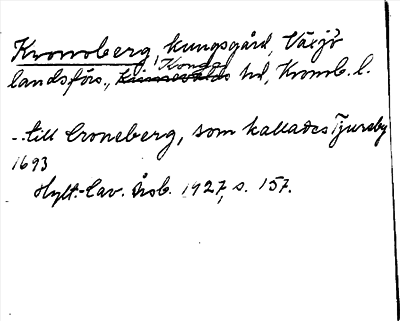 Kronoberg, kungsgård, Växjö
landsförs., Konga hd, Kronob. l.
- till Croneberg, som kallades Tjureby
1693
Hylt.-Cav. Årsb. 1927, s. 157.